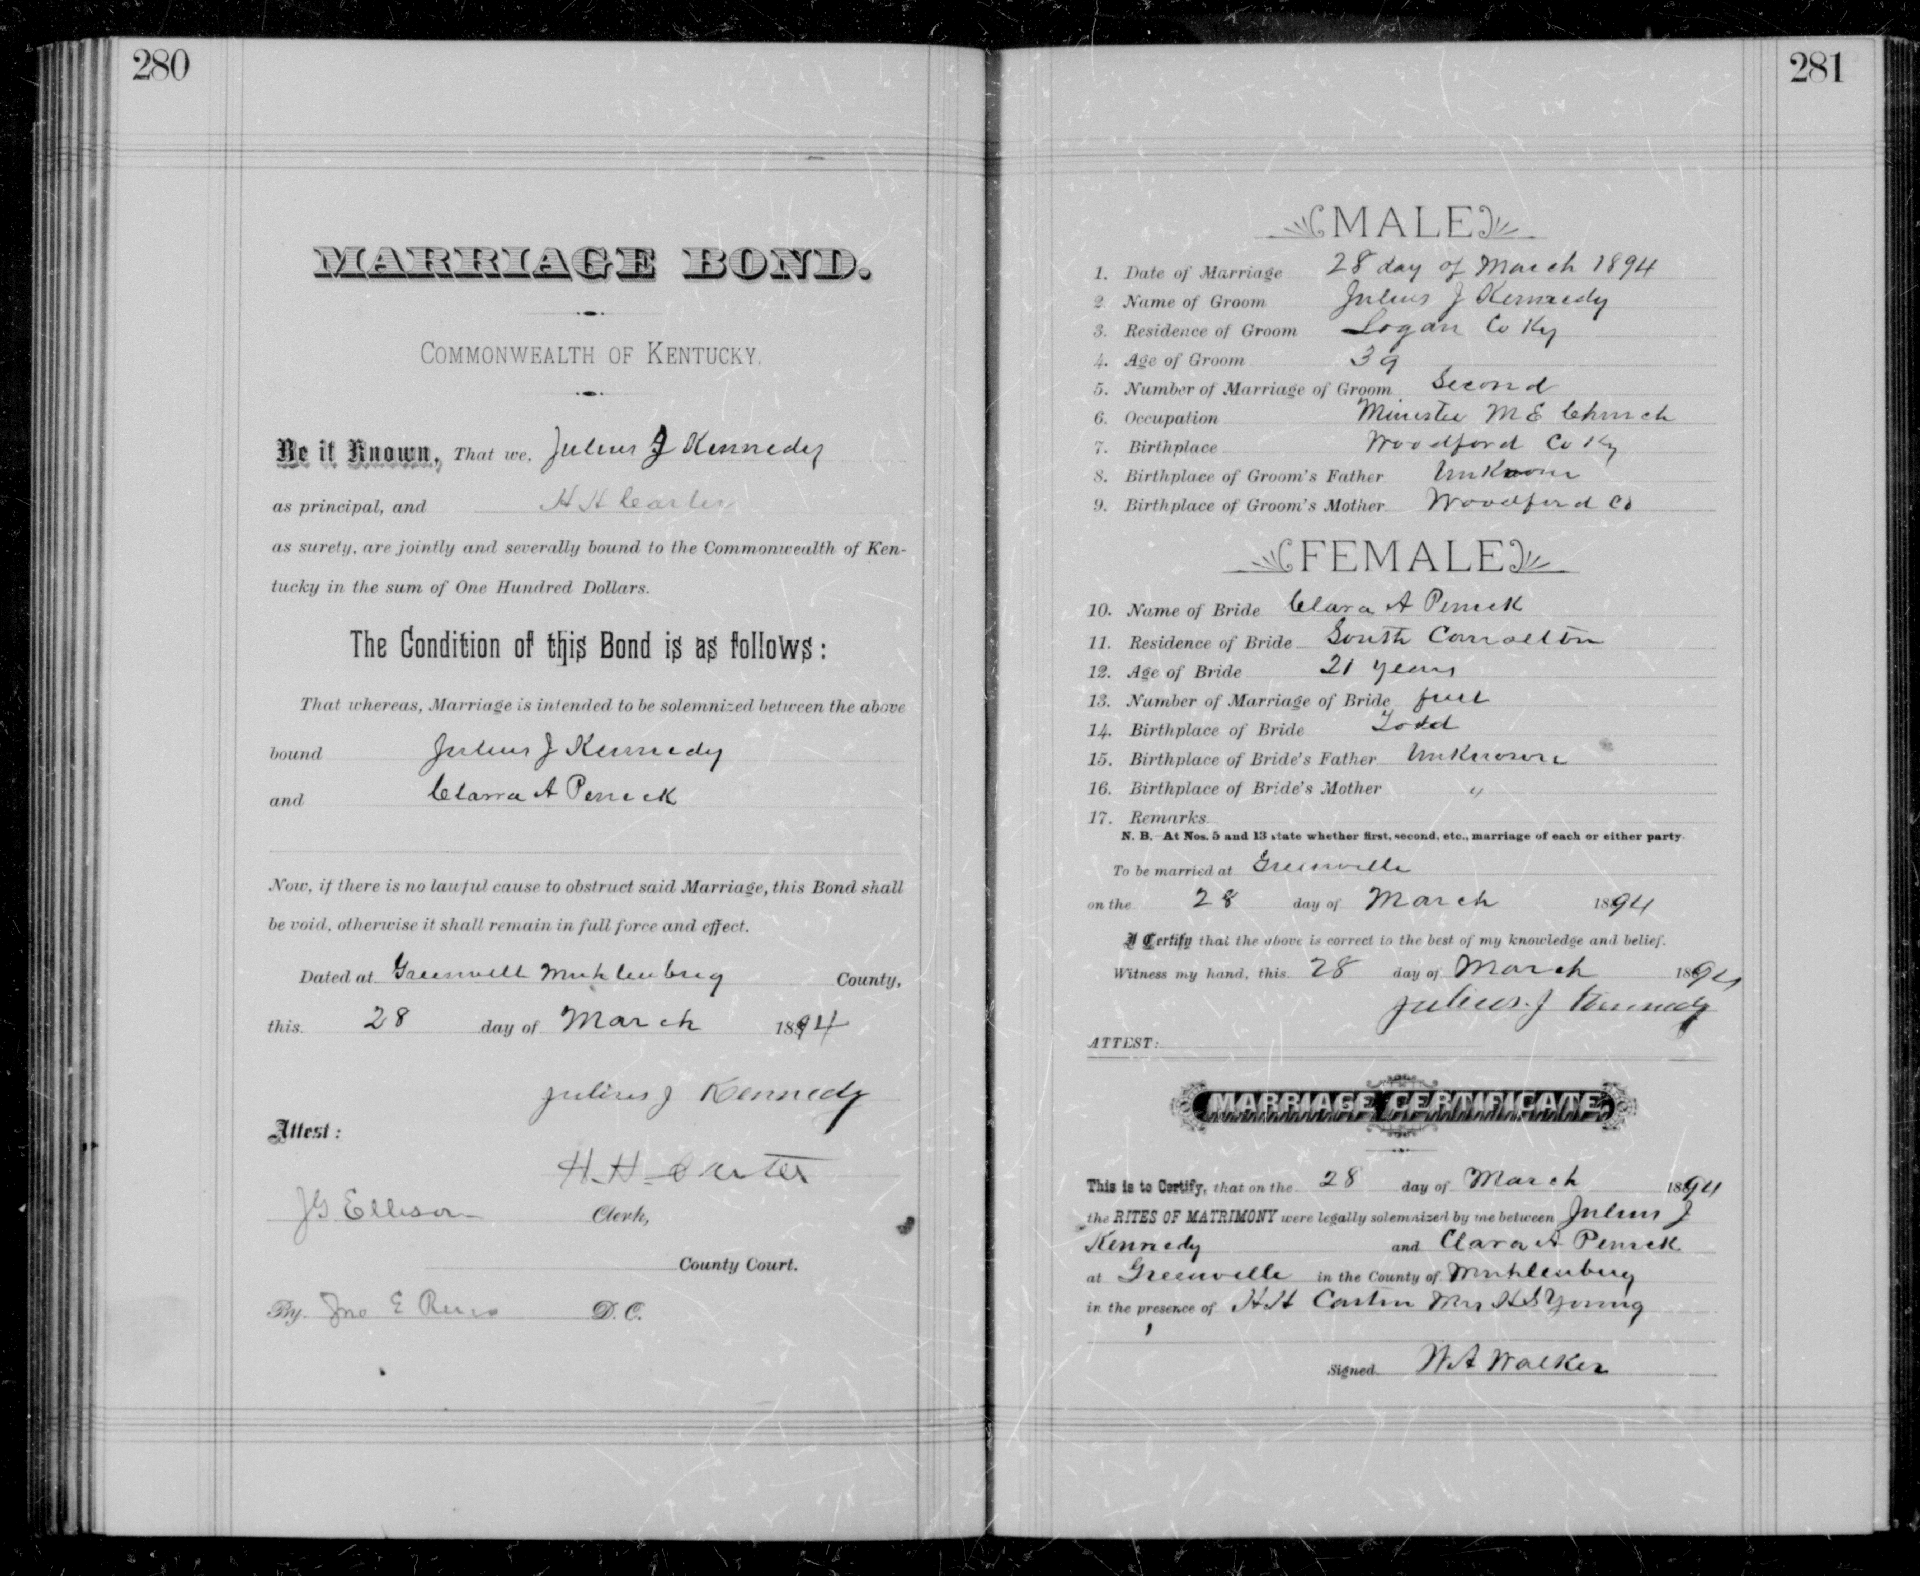 280
MARRIAGE BOND.
COMMONWEALTH OF KENTUCKY.
Be it Known, That we, Julius J Kennedy
as principal, and H H Carter
as surety, are jointly and severally bound to the Commonwealth of Ken-
tucky in the sum of One Hundred Dollars.
The Condition of this Bond is as follows:
That whereas, Marriage is intended to be solemnized between the above
bound Julius J Kennedy
and Clarra A Penick
Now, if there is no lawful cause to obstruct said Marriage, this Bond shall
be void, otherwise it shall remain in full force and effect.
Dated at Greenvill Muhlenburg County,
this 28 day of March 1894
Julius J Kennedy
Attest:
H. H. Carter
JG Ellison Clerk,
County Court.
By Jno E Reno D. C.
281
MALE
1. Date of Marriage 28 day of March 1894
2. Name of Groom Julius J Kennedy
3. Residence of Groom Logan Co Ky
4. Age of Groom 39
5. Number of Marriage of Groom Second
6. Occupation Minister M E Church
7. Birthplace Woodford Co Ky
8. Birthplace of Groom's Father Unknown
9. Birthplace of Groom's Mother Woodford Co
FEMALE
10. Name of Bride Clara A Penick
11. Residence of Bride South Carrollton
12. Age of Bride 21 years
13. Number of Marriage of Bride first
14. Birthplace of Bride Todd
15. Birthplace of Bride's Father Unknown
16. Birthplace of Bride's Mother "
17. Remarks
N. B. At Nos. 5 and 13 state whether first, second, etc., marriage of each or either party.
To be married at Greenville
on the 28 day of March 1894
I Certify that the above is correct to the best of my knowledge and belief.
Witness my hand, this 28 day of March 1894
Julius. J Kennedy
ATTEST:
MARRIAGE CERTIFICATE.
This is to Certify, that on the 28 day of March 1894
the RITES OF MATRIMONY were legally solemnized by me between Julius J
Kennedy and Clara A Penick
at Greenville in the County of Muhlenburg
in the presence of H H Carter Mrs H S Young
Signed W A Walker